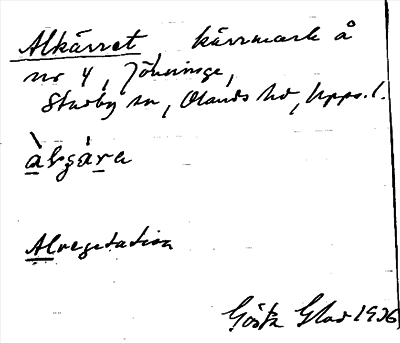 Alkärret, kärrmark å
nr 4, Jönninge,
Stavby sn, Olands hd, Upps. l.
àlçȧra
Alvegetation
Gösta Glad 1936